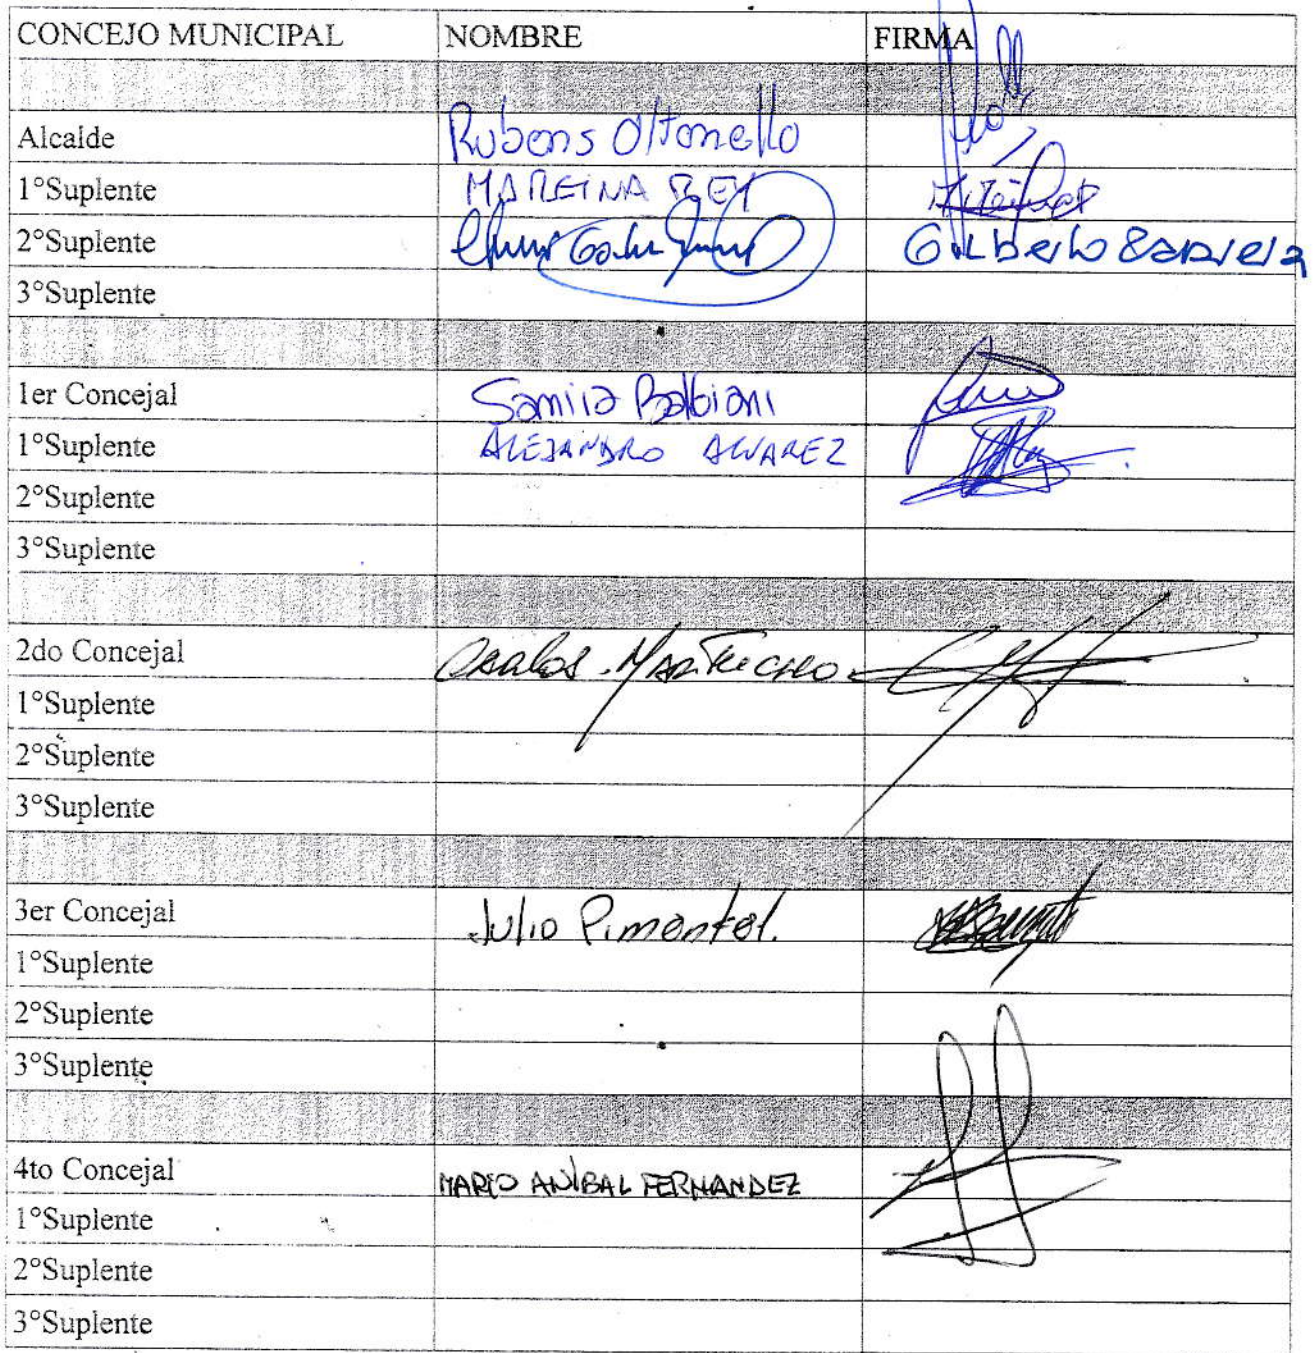 CONCEJO MUNICIPAL NOMBRE FIRMA
Alcalde Rubens Ottonello
1°Suplente MAREINA REY
2°Suplente Gilberto
3°Suplente
1er Concejal Samira Balbiani
1°Suplente ALEJANDRO ALVAREZ
2°Suplente
3°Suplente
2do Concejal Carlos
1°Suplente
2°Suplente
3°Suplente
3er Concejal Julio Pimentel.
1°Suplente
2°Suplente
3°Suplente
4to Concejal MARIO ANÍBAL FERNANDEZ
1°Suplente
2°Suplente
3°Suplente